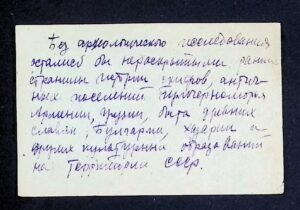 Без археологического исследования
остались бы нераскрытыми
страницы истории скифов, антич-
ных поселений Причерноморья
Армении, Грузии, быта древних
славян, Булгарии, Хазарии и
других культурных образований
на территории СССР.